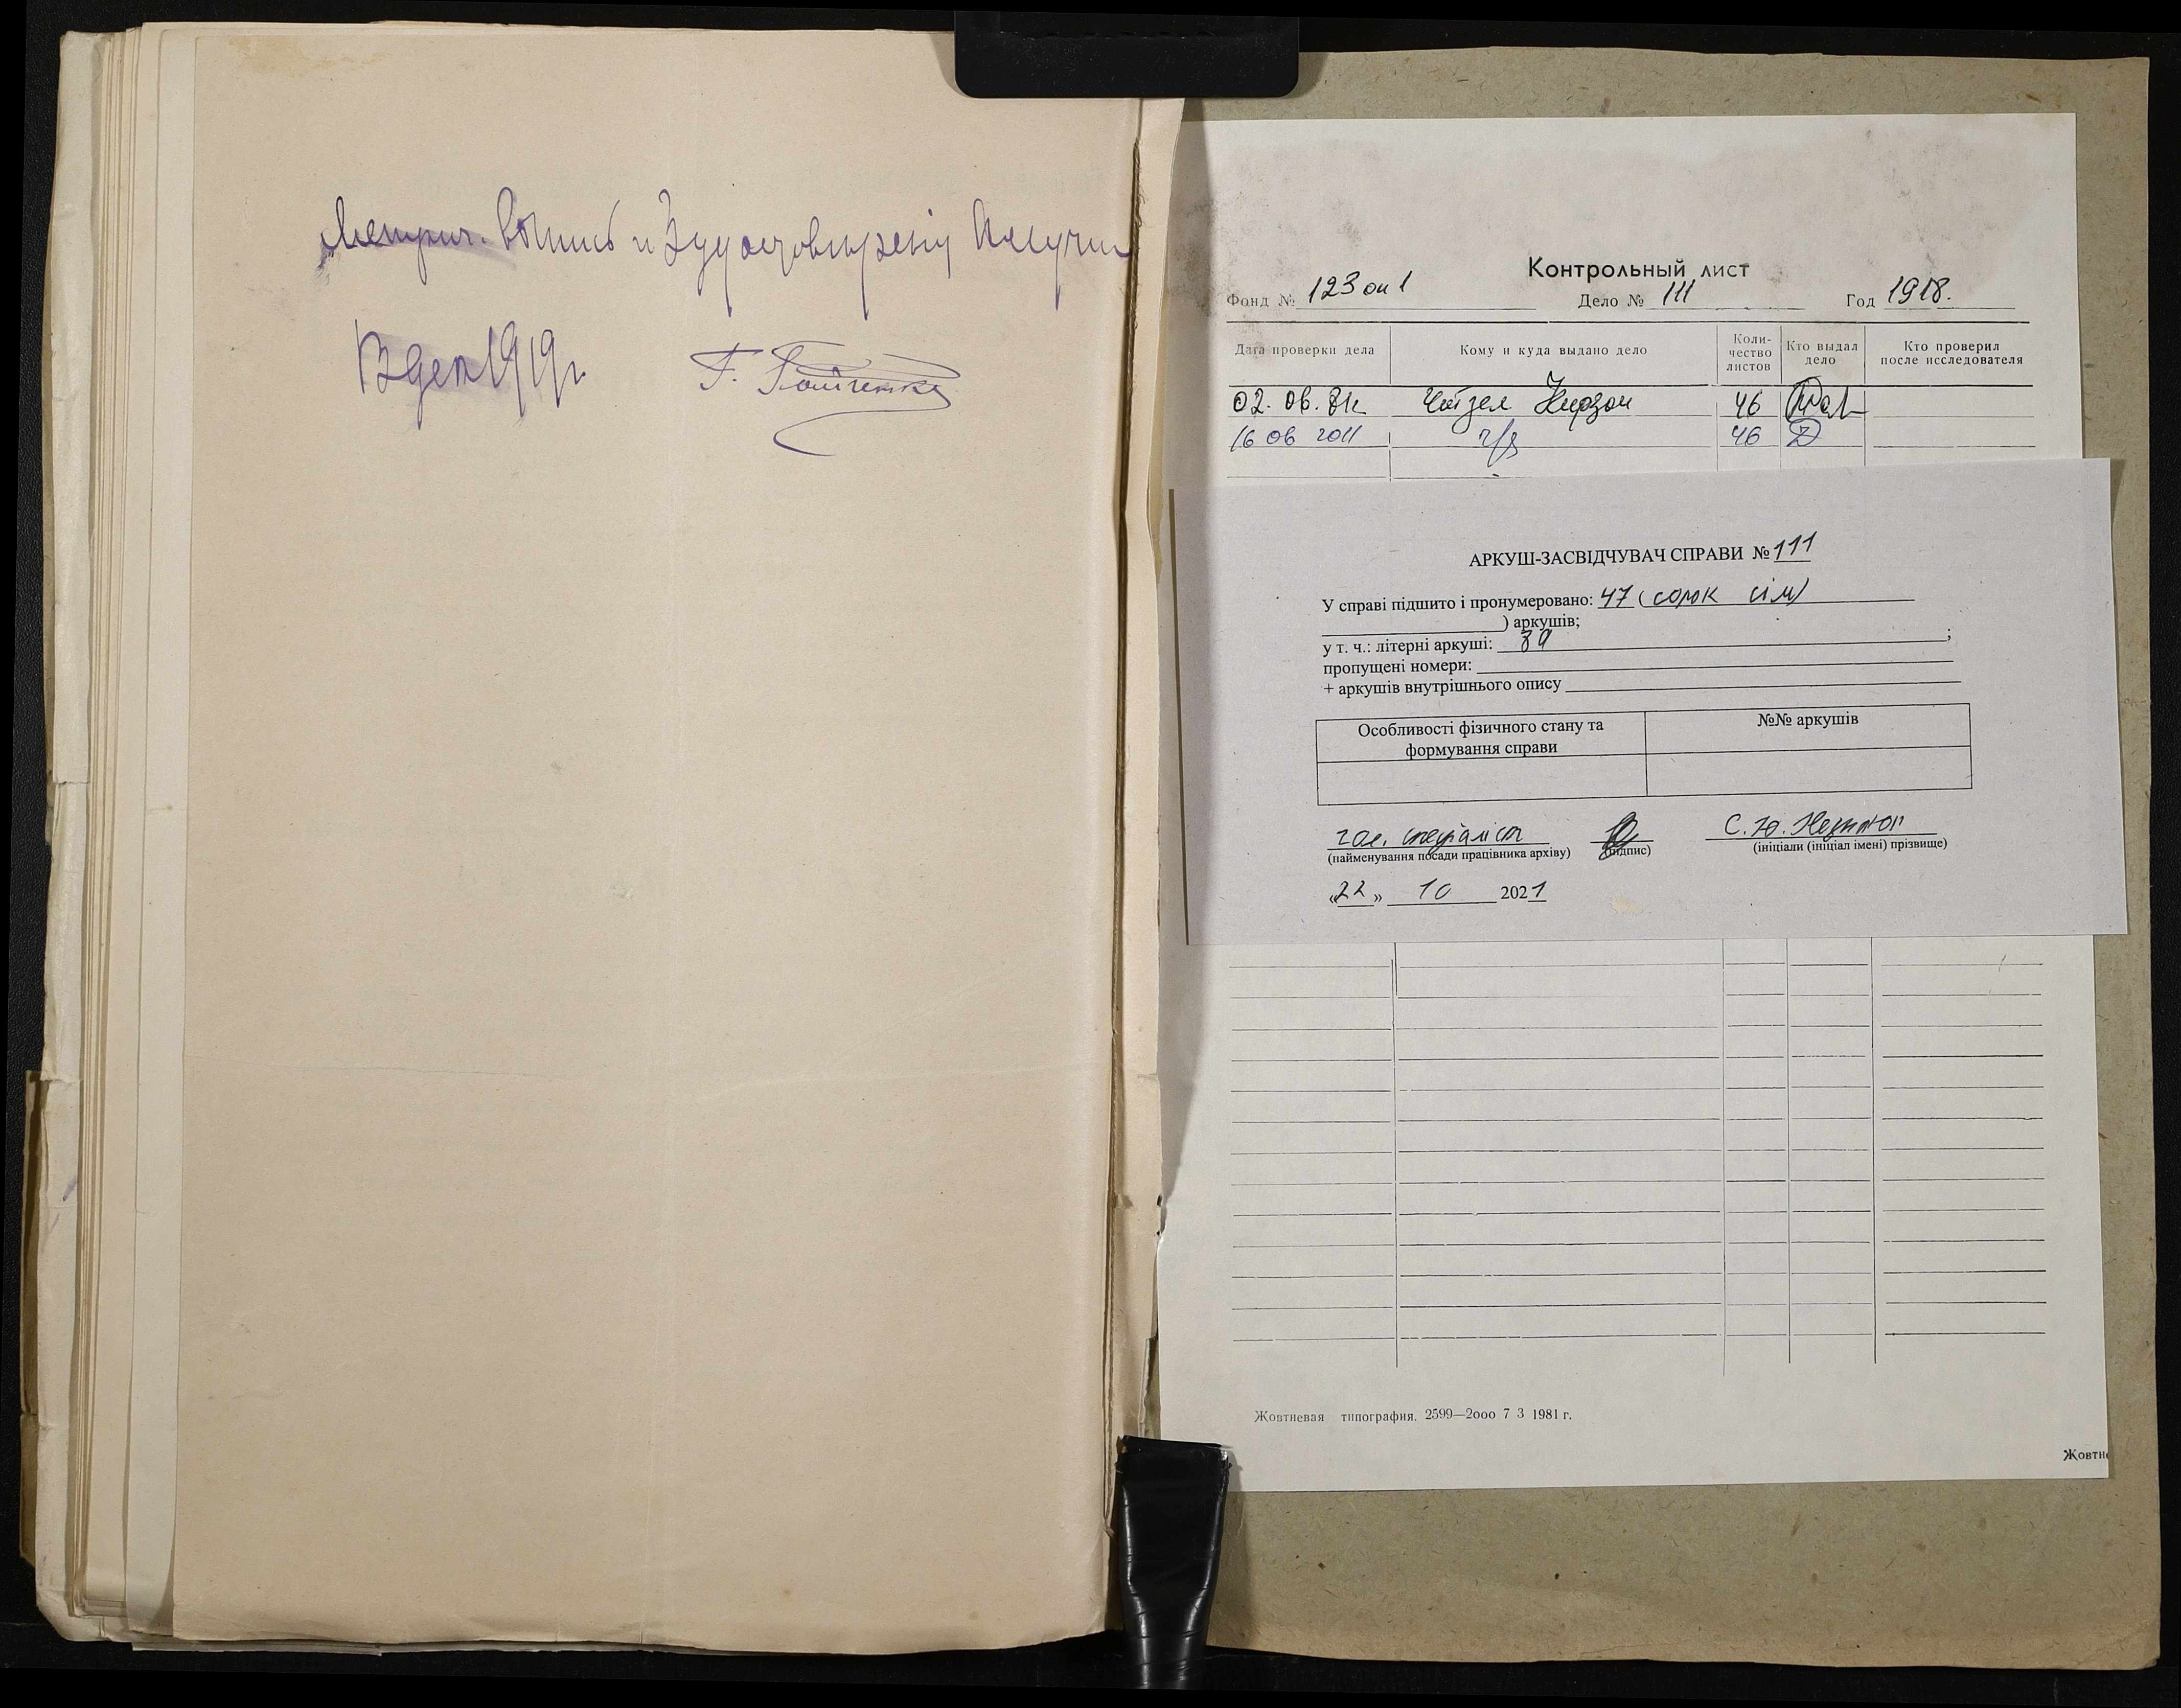 Метрич. Выпись и 3 удостовѣренiя Получил
13 дек 1919 г.
Г.
Контрольный лист
Фонд № 123 оп 1 Дело № 111 Год 1918.
Дата проверки дела
Кому и куда выдано дело
Коли-
чество
листов
Кто выдал
дело
Кто проверил
после исследователя
02. 06. 46
16 06 2011 46
АРКУШ-ЗАСВІДЧУВАЧ СПРАВИ № 111
У справі підшито і пронумеровано: 47 (сорок сім)
) аркушів;
у т. ч.: літерні аркуші: ;
пропущені номери:
+ аркушів внутрішнього опису
Особливості фізичного стану та
формування справи
№№ аркушів
гол. спеціаліст С.Ю.
(найменування посади працівника архіву) (підпис) (ініціали (ініціал імені) прізвище)
«22» 10 2021
Жовтневая типография. 2599—2ооо 7 3 1981 г.
Жовтн